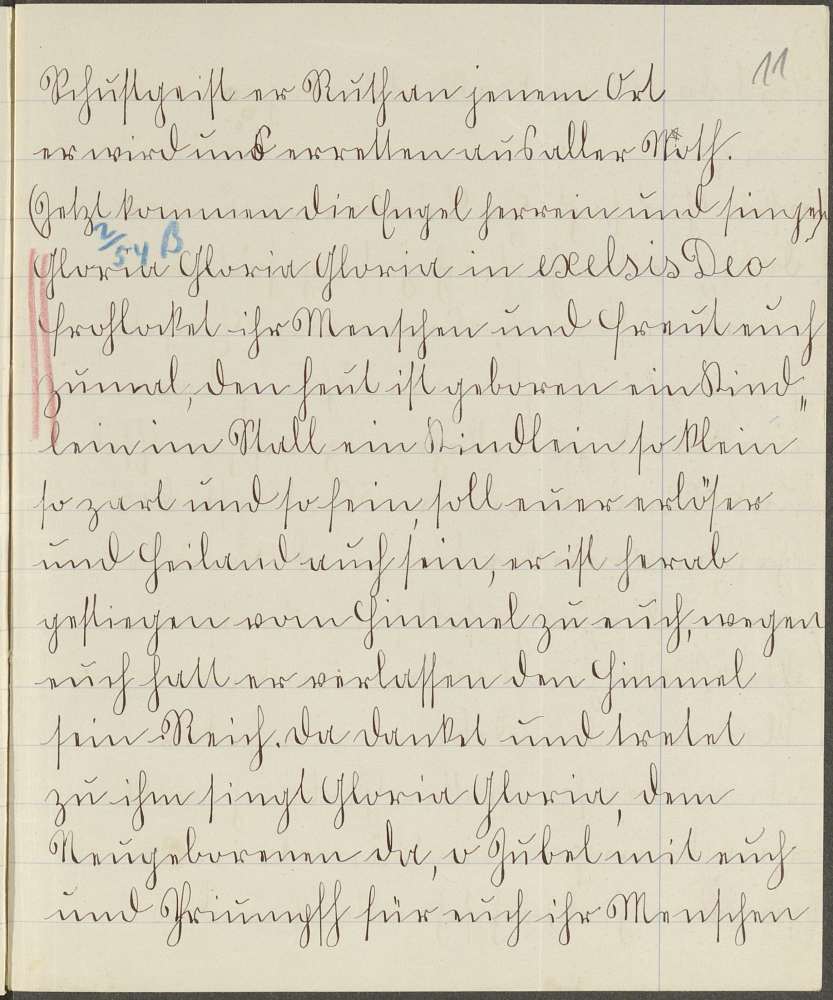 11
Schustgeist er Ruth an jenem Ort
er wird uns erretten aus aller Noth.
(Jetzt kommen die Engel herrein und singen)
2/54 B
Gloria Gloria Gloria in exelsis Deo
frohlocket ihr Menschen und freut euch
zumal, den heut ist geboren ein Kind„
lein im Stall ein Kindlein so klein
so zart und so fein, soll euer erlöser
und Heiland auch sein, er ist herab
gestiegen vom Himmel zu euch, wegen
euch hatt er verlassen den Himmel
sein Reich. Da danket und tretet
zu ihm singt Gloria Gloria, dem
Neugeborenen da, o Jubel mit euch
und Thriumpfh für euch ihr Menschen